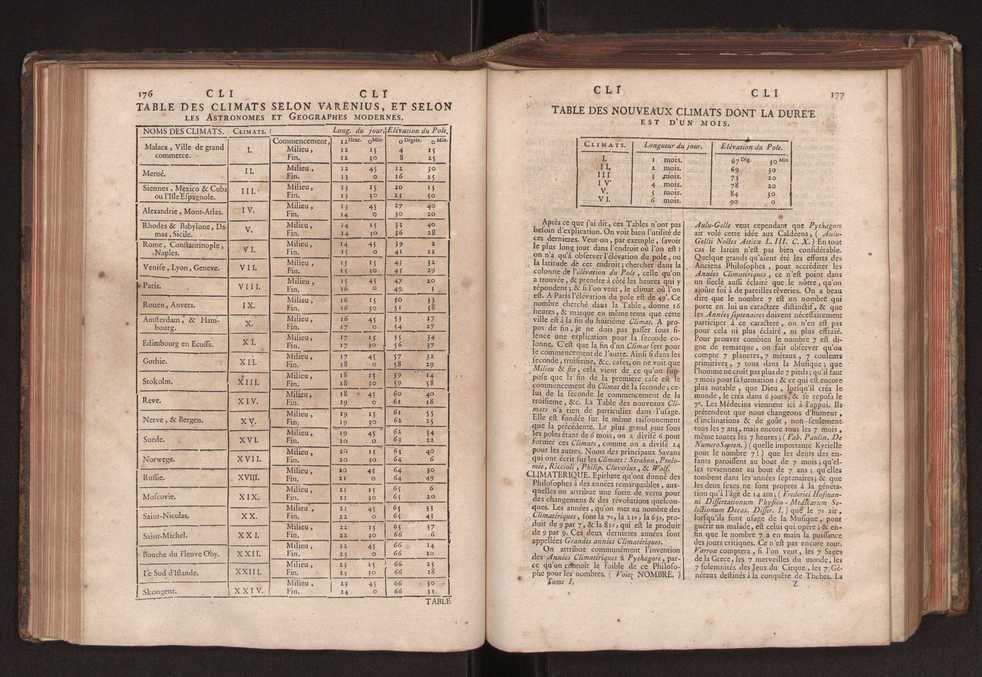 176 CLI CLI
TABLE DES CLIMATS SELON VARENIUS, ET SELON
LES ASTRONOMES ET GEOGRAPHES MODERNES.
NOMS DES CLIMATS. CLIMATS. Long. du jour. Elévation du Pole.
Malaca, Ville de grand commerce. I. Commencement, 12 Heur. 0 Min 0 Degrés. 0 Min.
Milieu, 12 15 4 15
Fin. 12 30 8 25
Meroé. II. Milieu, 12 45 12 30
Fin. 13 0 16 25
Siennes, Mexico & Cuba ou l'Isle Espagnole. III. Milieu, 13 15 20 15
Fin. 13 30 23 50
Alexandrie, Mont-Atlas. IV. Milieu, 13 45 27 40
Fin. 14 0 30 20
Rhodes & Babylone, Damas, Sicile. V. Milieu, 14 15 33 40
Fin. 14 30 36 28
Rome, Constantinople, Naples. VI. Milieu, 14 45 39 2
Fin. 15 0 41 22
Venise, Lyon, Geneve. VII. Milieu, 15 15 43 32
Fin. 15 30 45 29
Paris. VIII. Milieu, 15 45 47 20
Fin. 16 0 49 1
Rouen, Anvers. IX. Milieu, 16 15 50 33
Fin. 16 30 51 58
Amsterdam, & Hambourg. X. Milieu, 16 45 53 17
Fin. 17 0 54 27
Edimbourg en Ecosse. XI. Milieu, 17 15 55 34
Fin. 17 30 56 37
Gothie. XII. Milieu, 17 45 57 32
Fin. 18 0 58 29
Stokolm. XIII. Milieu, 18 15 59 14
Fin. 18 30 59 58
Reve. XIV. Milieu, 18 45 60 40
Fin. 19 0 61 18
Nerve, & Bergen. XV. Milieu, 19 15 61 55
Fin. 19 30 62 25
Sonde. XVI. Milieu, 19 45 62 54
Fin. 20 0 63 22
Norwege. XVII. Milieu, 20 15 63 40
Fin. 20 30 64 6
Russie. XVIII. Milieu, 20 45 64 30
Fin. 21 0 64 49
Moscovie. XIX. Milieu, 21 15 65 6
Fin. 21 30 65 20
Saint-Nicolas. XX. Milieu, 21 45 65 35
Fin. 22 0 65 45
Saint-Michel. XXI. Milieu, 22 15 65 57
Fin. 22 30 66 6
Bouche du Fleuve Oby. XXII. Milieu, 22 45 66 14
Fin. 23 0 66 20
Le Sud d'Islande. XXIII. Milieu, 23 15 66 25
Fin. 23 30 66 28
Skongent. XXIV. Milieu, 23 45 66 30
Fin. 24 0 66 31
TABLE
CLI CLI 177
TABLE DES NOUVEAUX CLIMATS DONT LA DURE'E
EST D'UN MOIS.
CLIMATS. Longueur du jour. Elévation du Pole.
I. 1 mois. 67 Dég. 30 Min
II. 2 mois. 69 30
III 3 mois. 73 20
IV 4 mois. 78 20
V. 5 mois. 84 30
VI. 6 mois. 90 0
Après ce que j'ai dit, ces Tables n'ont pas
besoin d'explication. On voit bien l'utilité de
ces dernieres. Veut-on, par exemple, savoir
le plus long jour dans l'endroit où l'on est:
on n'a qu'à observer l'élévation du pole, ou
la latitude de cet endroit; chercher dans la
colonne de l'élévation du Pole, celle qu'on
a trouvée, & prendre à côté les heures qui y
répondent; & si l'on veut, le climat où l'on
est. A Paris l'élévation du pole est de 49°. Ce
nombre cherché dans la Table, donne 16
heures, & marque en même tems que cette
ville est à la fin du huitiéme Climat. A propos
de fin, je ne dois pas passer sous silence
une explication pour la seconde colonne.
C'est que la fin d'un Climat sert pour
le commencement de l'autre. Ainsi si dans les
seconde, troisiéme, &c. cases, on ne voit que
Milieu & fin, cela vient de ce qu'on suppose
que la fin de la premiere case est le
commencement du Climat de la seconde; celui
de la seconde le commencement de la
troisiéme, &c. La Table des nouveaux Climats
n'a rien de particulier dans l'usage.
Elle est fondée sur le même raisonnement
que la précédente. Le plus grand jour sous
les poles étant de 6 mois, on a divisé 6 pour
former ces Climats, comme on a divisé 24
pour les autres. Noms des principaux Savans
qui ont écrit sur les Climats: Strabon, Ptolomée,
Riccioli, Philip. Cluverius, & Wolf.
CLIMATERIQUE. Epithete qu'ont donné des
Philosophes à des années remarquables, auxquelles
on attribue une sorte de vertu pour
des changemens & des révolutions quelconques.
Les années, qu'on met au nombre des
Climatériques, sont la 7e, la 21e, la 63e, produit
de 9 par 7, & la 81e, qui est le produit
de 9 par 9. Ces deux dernieres années sont
appellées Grandes années Climatériques.
On attribue communément l'invention
des Années Climatériques à Pythagore, parce
qu'on connoît le foible de ce Philosophe
pour les nombres. (Voïez NOMBRE.)
Tome I.
Aulu-Gelle veut cependant que Pythagore
ait volé cette idée aux Caldéens, (Aulu-
Gellii Noctes Atticæ L. III. C. X.) En tout
cas le larcin n'est pas bien considérable.
Quelque grands qu'aient été les efforts des
Anciens Philosophes, pour accréditer les
Années Climatériques, ce n'est point dans
un siecle aussi éclairé que le nôtre, qu'on
ajoute foi à de pareilles rêveries. On a beau
dire que le nombre 7 est un nombre qui
porte en lui un caractere distinctif, & que
les Années septenaires doivent nécessairement
participer à ce caractere, on n'en est pas
pour cela ni plus éclairé, ni plus effraïé.
Pour prouver combien le nombre 7 est digne
de remarque, on fait observer qu'on
compte 7 planetes, 7 métaux, 7 couleurs
primitives, 7 tons dans la Musique; que
l'homme ne croît pas plus de 7 pieds; qu'il faut
7 mois pour sa formation: & ce qui est encore
plus notable, que Dieu, lorsqu'il créa le
monde, le créa dans 6 jours, & se reposa le
7e. Les Médecins viennent ici à l'appui. Ils
prétendent que nous changeons d'humeur,
d'inclinations & de goût, non-seulement
tous les 7 ans, mais encore tous les 7 mois,
même toutes les 7 heures; (Fab. Paulin. De
Numero Septen.) (quelle importante Kyrielle
pour le nombre 7!) que les dents des enfans
paroissent au bout de 7 mois; qu'elles
reviennent au bout de 7 ans; qu'elles
tombent dans les années septenaires; & que
les deux sexes ne sont propres à la génération
qu'à l'âge de 14 ans; (Frederici Hofmanni
Dissertationum Physico-Medicarum Selectionum
Decas. Disser. I.) que le 7e air,
lorsqu'ils font usage de la Musique, pour
guérir un malade, est celui qui opére; & enfin
que le nombre 7 a en main la puissance
des jours critiques. Ce n'est pas encore tout.
Varron comptera, si l'on veut, les 7 Sages
de la Grece, les 7 merveilles du monde, les
7 solemnités des Jeux du Cirque, les 7 Généraux
destinés à la conquête de Thebes. La
Z